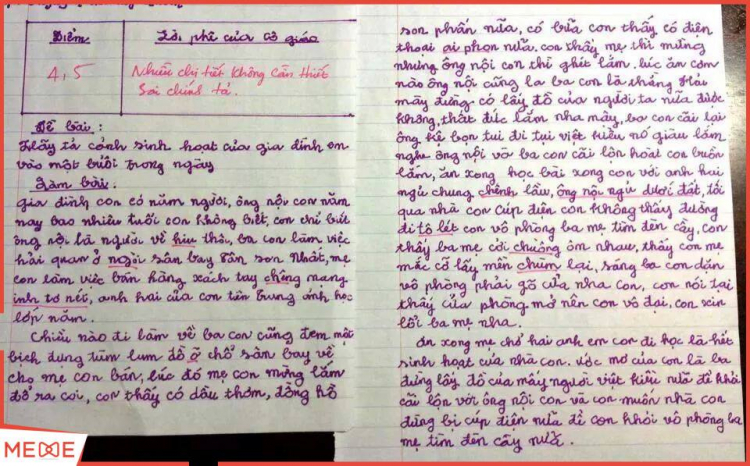 Điểm
Lời phê của cô giáo
4,5
Nhiều chi tiết không cần thiết
Sai chính tả.
Đề bài :
Hãy tả cảnh sinh hoạt của gia đình em
vào một buổi trong ngày
Làm bài :
Gia đình con có năm người, ông nội con năm
nay bao nhiêu tuổi con không biết, con chỉ biết
ông nội là người về hiu thôi, ba con làm việc
hải quan ở ngoài sân bay Tân Sơn Nhất, mẹ
con làm việc bán hàng xách tay chêng mạng
inh tơ nét, anh hai của con tên Trung ảnh học
lớp năm.
Chiều nào đi làm về ba con cũng đem một
bịch đựng tùm lum đồ ở chổ sân bay về
cho mẹ con bán, lúc đó mẹ con mừng lắm
đổ ra coi, con thấy có dầu thơm, đồng hồ
son phấn nữa, có bữa con thấy có điện
thoại ai phọn nữa. con thấy mẹ thì mừng
nhưng ông nội con thì ghét lắm. lúc ăn cơm
nào ông nội cũng la ba con là thằng Hải
mày đừng có lấy đồ của người ta nữa được
không, thất đức lắm nha mày, ba con cãi lại
ông kệ bọn tui đi tụi việt kiều nó giàu lắm
nghe ông nội và ba con cãi lộn hoài con buồn
lắm, ăn xong học bài xong con với anh hai
ngủ chung chênh lầu, ông nội ngụ dưới đất, tối
qua nhà con cúp điện con không thấy đường
đi tô lét con vô phòng ba mẹ tìm đèn cầy, con
thấy ba mẹ cởi chuồng ôm nhau, thấy con mẹ
mắc cở lấy mền chùm lại, sáng ba con dặn
vô phòng phải gõ cửa nha con, con nói tại
thấy cửa phòng mở nên con vô đại, con xin
lỗi ba mẹ nha.
Ăn xong mẹ chở hai anh em con đi học là hết
sinh hoạt của nhà con. ước mơ của con là ba
đừng lấy đồ của mấy người việt kiều nữa để khỏi
cãi lộn với ông nội con và con muốn nhà con
đừng bị cúp điện nữa để con khỏi vô phòng ba
mẹ tìm đèn cầy nữa.
MEME